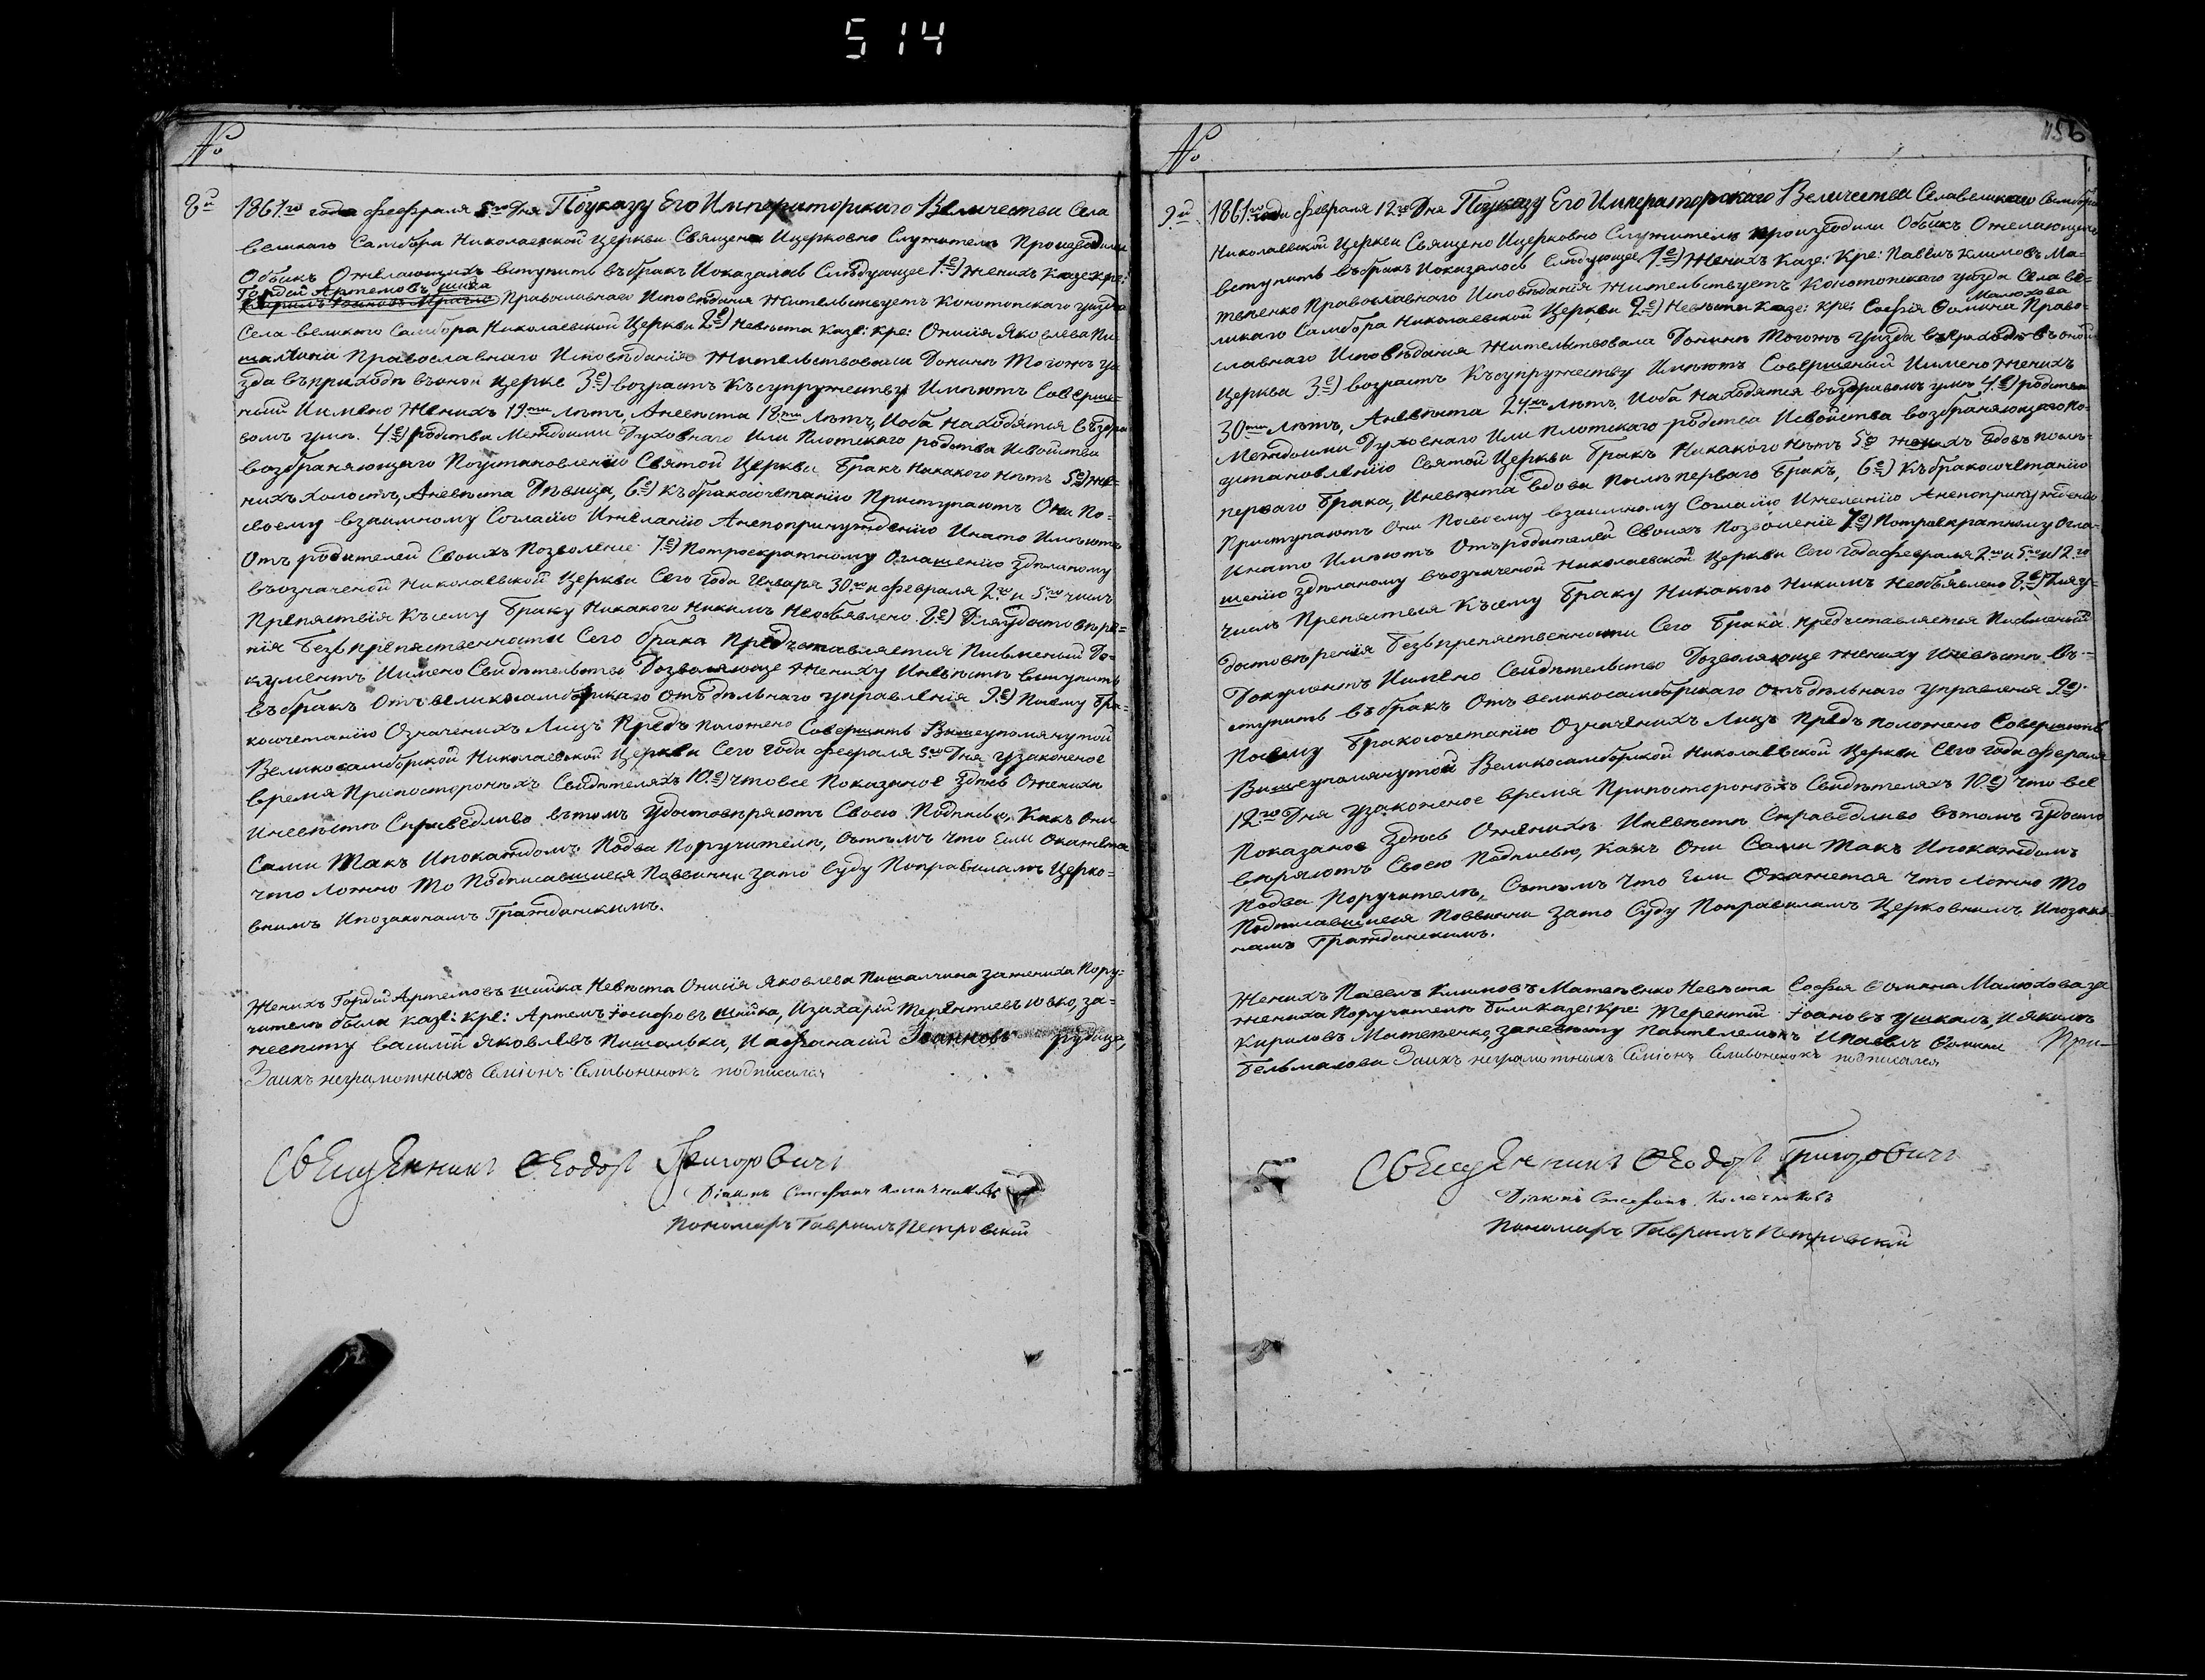 514
№
8й 1861го года февраля 5го Дня По указу Его Императорскаго Величества Села
великаго Самбора Николаевской Церкви Священо Ицерковно Служители Производили
Обыкъ Ожелающихъ вступить въбракъ Иоказалось Слѣдующее 1е) Женихъ Казе: кре:
Гордѣй Артемовъ Шийка
Православнаго Исповѣдания Жительствуетъ Конотопскаго уизда
Села великаго Самбора Николаевской Церкви 2е) Невѣста Казе: кре: Онисія Яковлева Пи-
щалкина Православнаго Исповѣданія Жительствовала Донынѣ Тогожъ уи
зда въприходѣ въоной Церкве 3е) возрастъ Къ супружеству Имѣютъ Соверше-
ный Иимено Женихъ 19ти лѣтъ, Аневѣста 18ти Лѣтъ, Иоба Находятся въздра
вомъ умѣ. 4е) родства Междоими Духовнаго Или Плотскаго родства Исвойства
возбраняющаго Поустановленію Святой Церкви Бракъ Никакого Нѣтъ 5е) же-
нихъ холостъ, Аневѣста Дѣвица, 6е) Къбракосочетанію Приступаютъ Они По-
своему взаимному Согласію Ижеланію Анепопринуждению Инато Имѣютъ
Отъ родителей Своихъ Позволение 7е) Потроекратному Оглашению здѣланому
въозначеной Николаевской Церкви Сего Года Января 30го и февраля 2го и 5го числъ
Препятствія Къ сему Браку Никакого Никимъ Необъявлено 8е) Дляудостовѣре-
нія Безъ препятственности Сего брака Представляется Письменый До-
кументъ Иимено Свидѣтельство Дозволяюще Жениху Иневѣстѣ вступить
въбракъ Отъ великосамборскаго отъдѣльнаго управленія 9е) Посему Бра-
косочетанію Означенихъ Лицъ Предъ положено Совершить Вышеупомянутой
Великосамборской Николаевской Церкви Сего года февраля 5го Дня узаконеное
время Припостороныхъ Свидѣтеляхъ 10е) что все Показаное Здѣсь Оженихѣ
Иневѣстѣ Справедливо вътомъ Удостовѣряютъ Своею Подписью, Какъ Они
Сами Такъ Ипокаждомъ Подва Поручителѣ, Сътѣмъ что Если Окажется
что ложно То Подписавшиеся Повинни зато Суду Поправиламъ Церко-
внимъ Ипозаконамъ Гражданскимъ.
Женихъ Гордѣй Артемовъ Шийка Невѣста Онисія Яковлева Пищалкина за жениха Пору-
чители были казе: кре: Артемъ Іосифовъ Шийка, Изахарій Терентиевъ Ювко, за-
невѣсту Василій Яковлевъ Пищалка, Иафанасий Іоанновъ Рудица,
Заихъ неграмотныхъ Семіонъ Селивоненокъ подписался
Священникъ Ѳеодоръ Григоровичъ
Діаконъ Стефанъ Колечниковъ
Пономаръ Гавриилъ Петровский
№ 456
9й 1861го года февраля 12го Дня По указу Его Императорскаго Величества Села великаго Самбора
Николаевской Церкви Священо Ицерковно Служители производили Обыкъ Ожелающихъ
вступить въбракъ Иоказалось Слѣдующее 1е) Женихъ Казе: Кре: Павелъ Климовъ Ма-
тепенко Православнаго Исповѣданія Жительствуетъ Конотопскаго уѣзда Села ве-
ликаго Самбора Николаевской Церкви 2е) Невѣста Казе: кре: Софія Ѳомина Малюхова Право-
славнаго Исповѣданія Жительствовала Донынѣ Тогожъ уѣзда въприходѣ въоной
Церкви 3е) возрастъ Къ супружеству Имѣютъ Совершеный Иимено Женихъ
30ти лѣтъ, Аневѣста 24хъ лѣтъ, Иоба Находятся въздравомъ умѣ 4е) родства
Междоими Духовнаго Или Плотскаго родства Исвойства возбраняющаго По-
установленію Святой Церкви Бракъ Никакого Нѣтъ 5е женихъ вдовъ послѣ
перваго Брака, Иневѣста вдова Послѣ перваго Бракъ, 6е) Къбракосочетанію
Приступаютъ Они Посвоему взаимному Согласію Ижеланію Анепопринуждению
Инато Имѣютъ Отъродителей Своихъ Позволеніе 7е) Потроекратному Огла-
шенію здѣланому въозначеной Николаевской Церкви Сего Года февраля 2го и 5го и 12го
числъ Препятствія Къ сему Браку Никакого Никимъ Необъявлено 8е) Для у-
достовѣренія Безъпрепятственности Сего Брака представляется Письменый
Документъ Иимено Свидѣтельство Дозволяюще Жениху Иневѣстѣ въ-
ступить въбракъ Отъ великосамборскаго Отъдѣльнаго Управленія 9е)
Посему Бракосочетанію Означенихъ Лицъ Предъ положено Совершить
Вышеупомянутой Великосамборской Николаевской Церкви Сего года февраля
12го Дня Узаконеное время Припостороныхъ Свидѣтеляхъ 10е) что все
Показаное Здѣсь Оженихѣ Иневѣстѣ Справедливо вътомъ Удосто-
вѣряютъ Своею Подписью, Какъ Они Сами Такъ Ипокаждомъ
Подва Поручителѣ, Сътѣмъ что Если Окажется что ложно То
Подписавшиеся Повинни зато Суду Поправиламъ Церковнимъ Ипозако-
намъ Гражданскимъ.
Женихъ Павелъ Климовъ Матепенко Невѣста Софія Ѳомина Малюхова за
жениха Поручители Были казе: Кре: Терентий Іоановъ Ушкалъ, и Якимъ
Кириловъ Матепенко, заневѣсту Пантелемонъ Ипавелъ Ѳомини
Бельмахова Заихъ неграмотныхъ Семіонъ Селивоненокъ подписался. При-
Священникъ Ѳеодоръ Григоровичъ
Діаконъ Стефанъ Колечниковъ
Пономаръ Гавриилъ Петровский